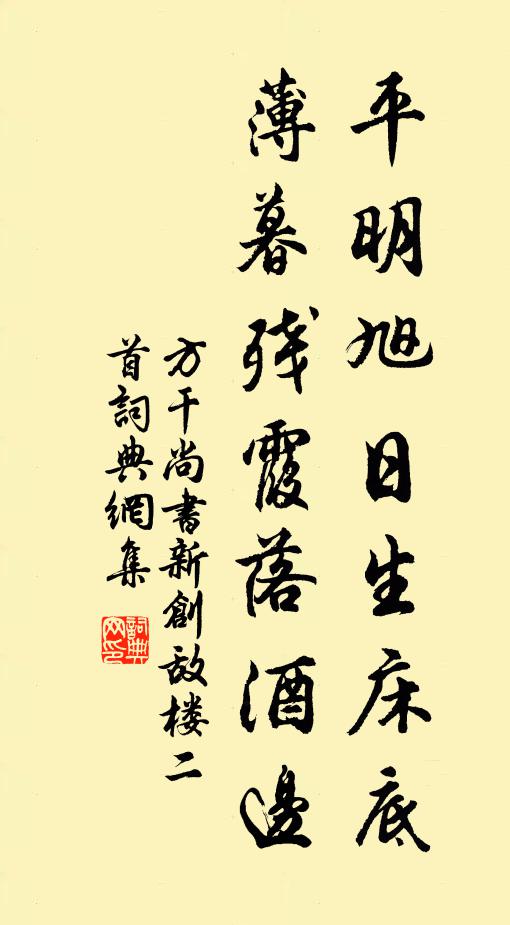 平明旭日生床底
薄暮残霞落酒邊
方干尚書新創敌楼二
首詞典網集
詞典
网印